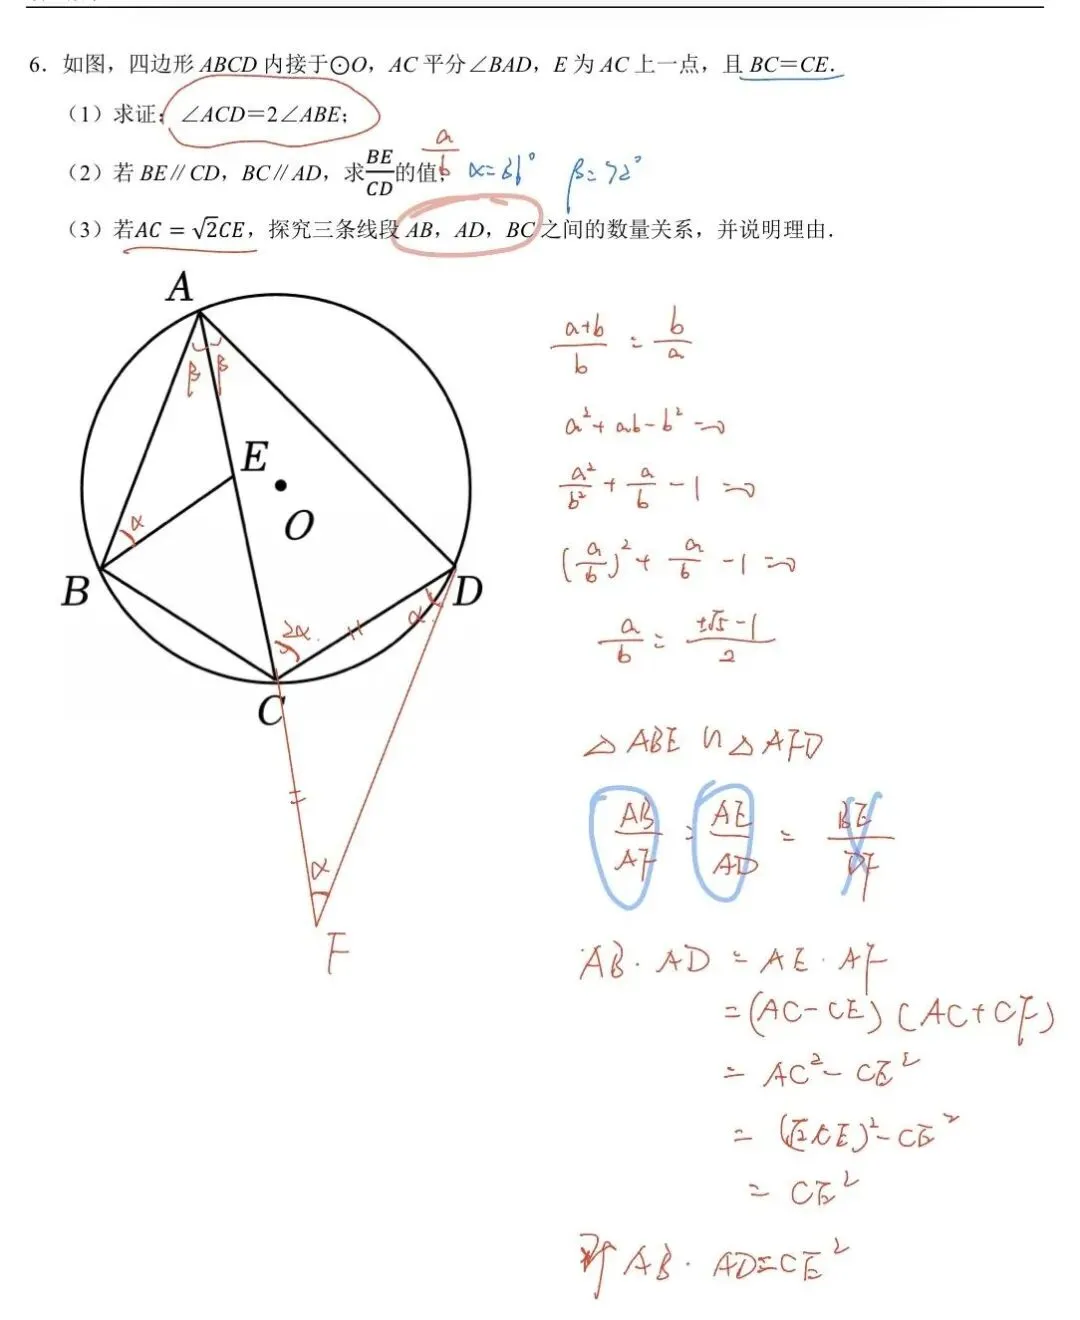 6. 如图，四边形 ABCD 内接于⊙O，AC 平分∠BAD，E 为 AC 上一点，且 BC=CE.
（1）求证：∠ACD=2∠ABE；
（2）若 BE∥CD，BC∥AD，求BE/CD的值； a/b α=36° β=72°
（3）若AC=√2CE，探究三条线段 AB，AD，BC 之间的数量关系，并说明理由.
A
β β
E
O
α
B
D
2α
α
C
α
F
(a+b)/b = b/a
a²+ab-b²=0
a²/b² + a/b -1=0
(a/b)² + a/b -1=0
a/b = (±√5-1)/2
△ABE ∽ △AFD
AB/AF = AE/AD = BE/DF
AB·AD = AE·AF
=(AC-CE)(AC+CF)
= AC²-CE²
= (√2CE)²-CE²
= CE²
即 AB·AD=CE²